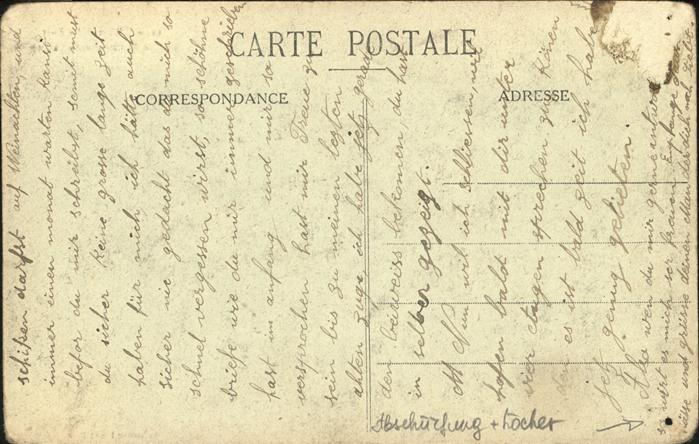 CARTE POSTALE
CORRESPONDANCE
ADRESSE
schißen darfst auf Weinachten, und
immer einen monat warten kanst
befor du mir schreibst, somit must
du sicher keine grosse lange zeit
haben für mich, ich hätte auch
sicher nie gedacht das du mich so
schnel vergessen wirst, so schöhne
briefe wie du mir immer geschrieben
hast im anfang und mir so
versprochen hast mir Treue zu
sein bis zu meinen lezten
zuge ich habe jez grad
den beweiss bekomen du hast
in selber gezeigt.
Nun wil ich schliessen, und
hofen bald mit dir unter
vier augen sprechen zu könen
den es ist bald zeit ich habe
jez genug gelieten.
Also wen du mir gerne
es mich
Abschürfung + Löcher